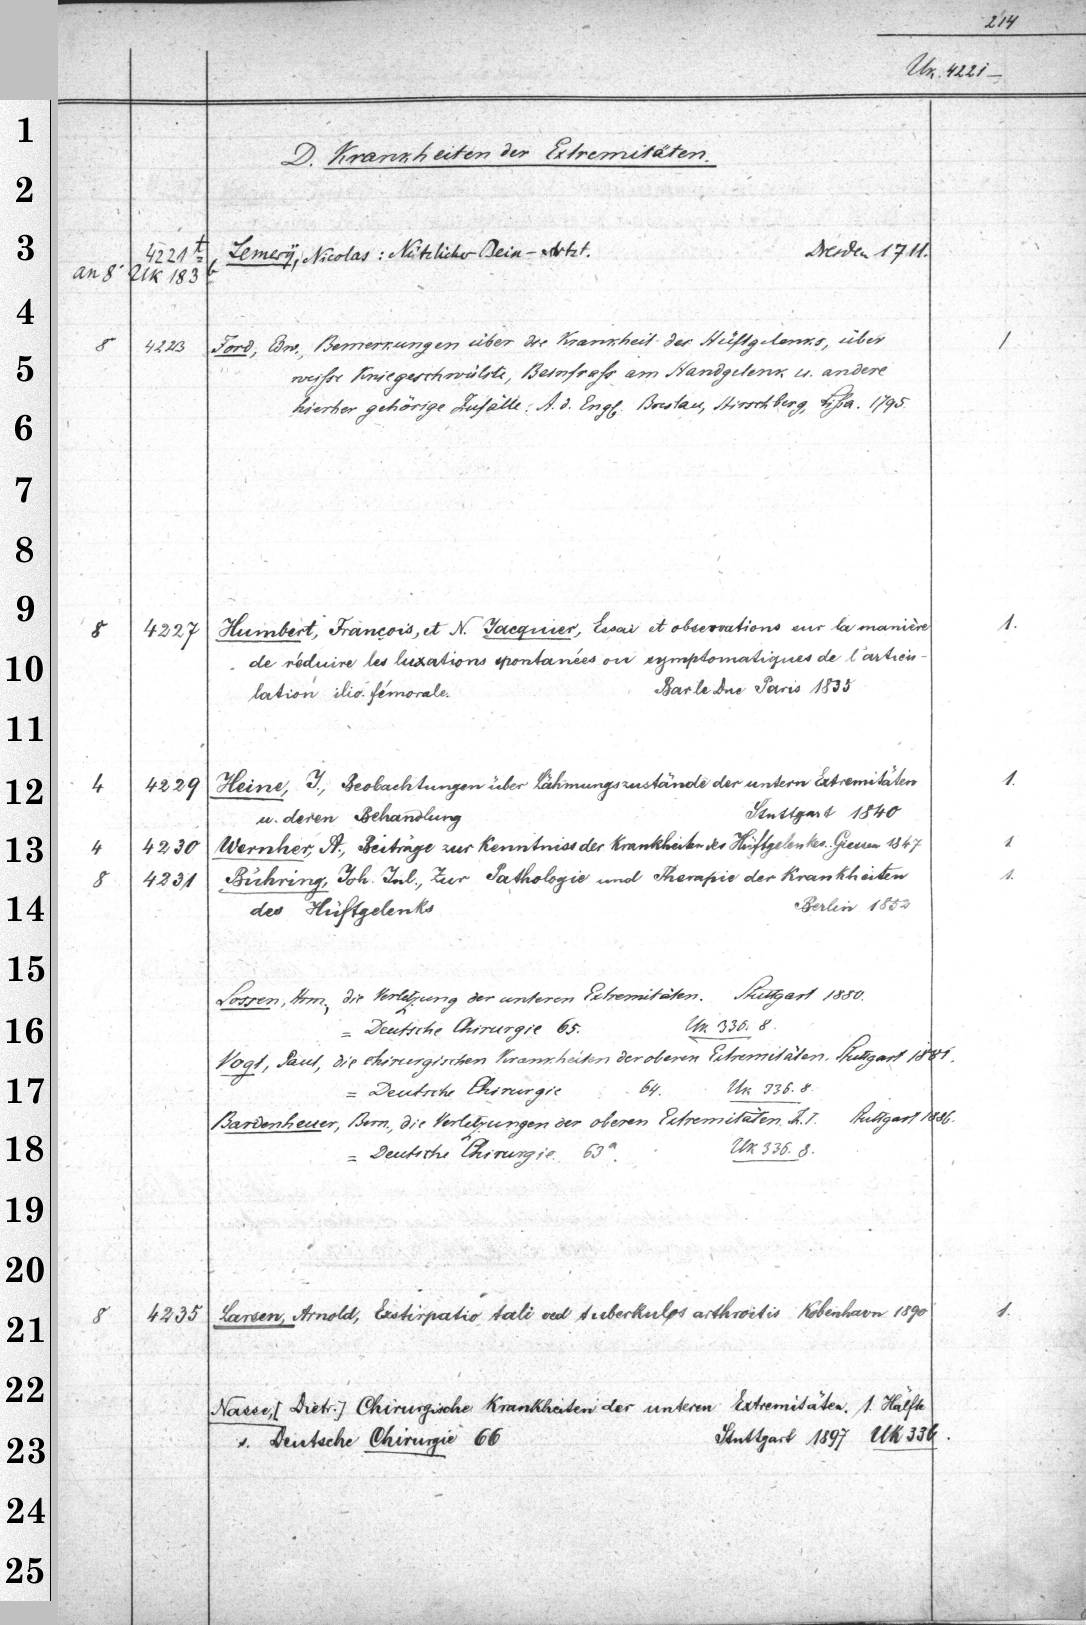 214
Uk. 4221–
1
2
3
4
5
6
7
8
9
10
11
12
13
14
15
16
17
18
19
20
21
22
23
24
25
D. Krankheiten der Extremitäten.
4221 t Lemery, Nicolas: Nützlicher Bein-Artzt. Dresden 1711.
an 8° Uk 183 b
8 4223 Ford, Edw., Bemerkungen über die Krankheit des Hüftgelenks, über 1
weisse Kniegeschwülste, Beinfrass am Handgelenk u. andere
hierher gehörige Zufälle. A. d. Engl. Breslau, Hirschberg, Lissa. 1795.
8 4227 Humbert, François, et N. Jacquier, Essai et observations sur la manière 1.
de réduire les luxations spontanées ou symptomatiques de l'articu-
lation ilio-fémorale. Bar le Duc Paris 1835
4 4229 Heine, J., Beobachtungen über Lähmungszustände der untern Extremitäten 1.
u. deren Behandlung Stuttgart 1840
4 4230 Wernher, A., Beiträge zur Kenntniss der Krankheiten des Hüftgelenkes. Giessen 1847 1
8 4231 Bühring, Joh. Jul., Zur Pathologie und Therapie der Krankheiten 1.
des Hüftgelenks Berlin 1852
Lossen, Hrm., die Verletzung der unteren Extremitäten. Stuttgart 1880.
= Deutsche Chirurgie 65. Uk 336. 8.
Vogt, Paul, die chirurgischen Krankheiten der oberen Extremitäten. Stuttgart 1881.
= Deutsche Chirurgie 64. Uk 336. 8.
Bardenheuer, Bern., die Verletzungen der oberen Extremitäten. Th. I. Stuttgart 1886.
= Deutsche Chirurgie. 63a. Uk 336. 8.
8 4235 Larsen, Arnold, Exstirpatio tali ved tuberkuløs arthroitis København 1890 1.
Nasse, [Dietr.] Chirurgische Krankheiten der unteren Extremitäten. 1. Hälfte
s. Deutsche Chirurgie 66 Stuttgart 1897 Uk 336.